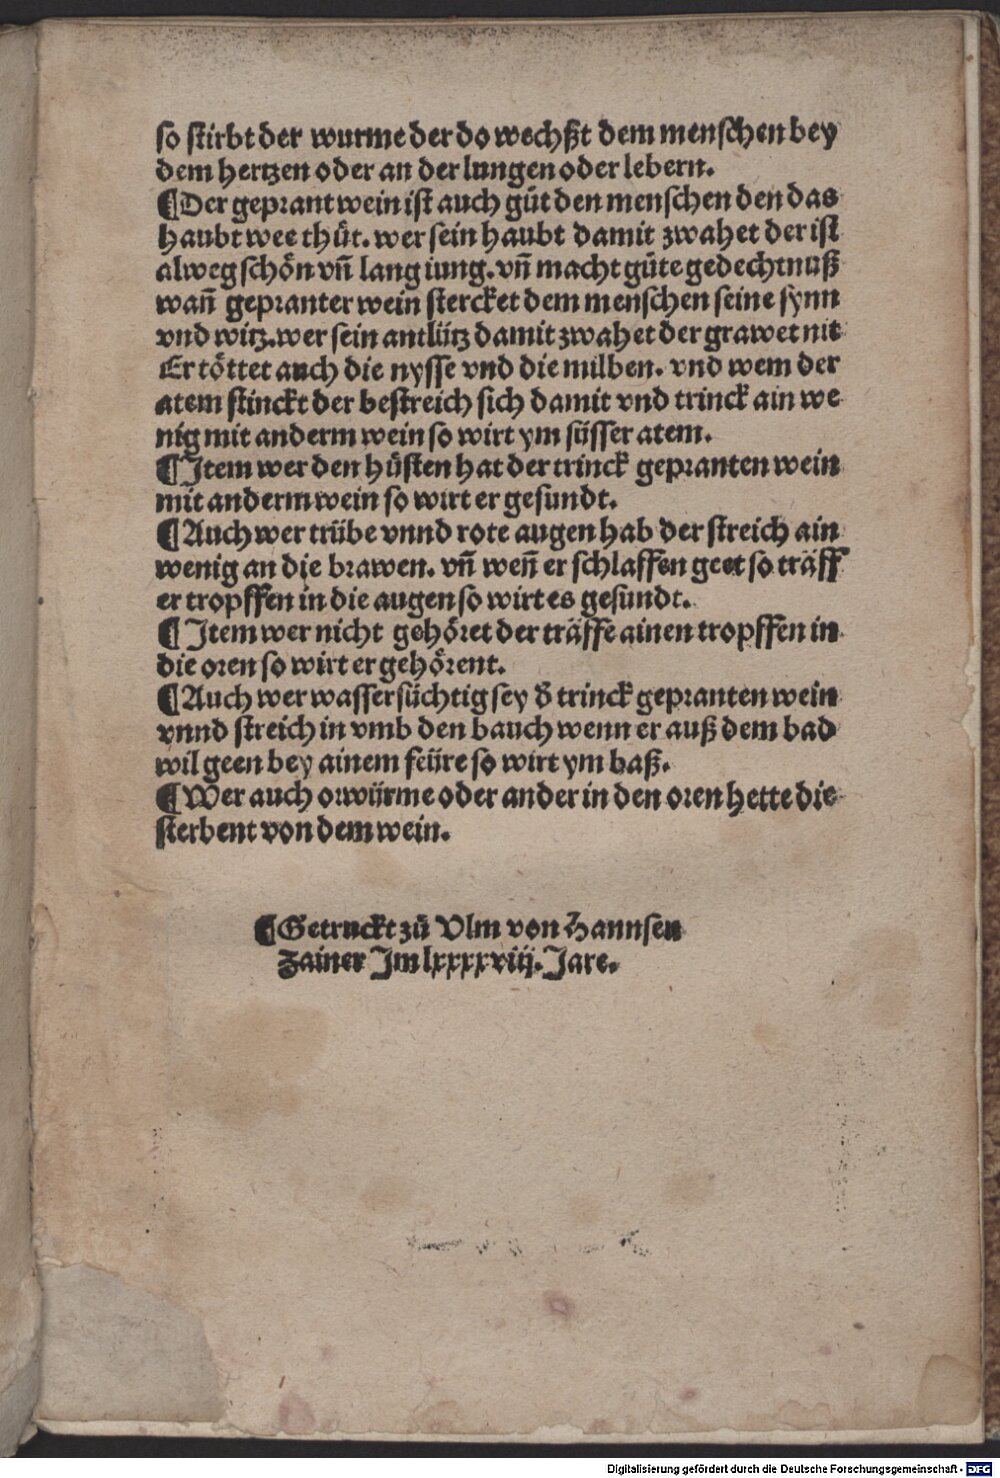 so stirbt der wurme der do wechßt dem menschen bey
dem hertzen oder an der lungen oder lebern.
¶Der geprant wein ist auch gůt den menschen den das
haubt wee thůt. wer sein haubt damit zwahet der ist
alweg schön vñ lang iung. vñ macht gůte gedechtnuß
wañ gepranter wein stercket dem menschen seine synn
vnd witz. wer sein antlütz damit zwahet der grawet nit
Er töttet auch die nysse vnd die milben. vnd wem der
atem stinckt der bestreich sich damit vnd trinck ain we
nig mit anderm wein so wirt ym süsser atem.
¶Item wer den hůsten hat der trinck gepranten wein
mit anderm wein so wirt er gesundt.
¶Auch wer trübe vnnd rote augen hab der streich ain
wenig an die brawen. vñ weñ er schlaffen geet so träff
er tropffen in die augen so wirt es gesundt.
¶Item wer nicht gehöret der träffe ainen tropffen in
die oren so wirt er gehörent.
¶Auch wer wassersüchtig sey đ trinck gepranten wein
vnnd streich in vmb den bauch wenn er auß dem bad
wil geen bey ainem feüre so wirt ym baß.
¶Wer auch orwürme oder ander in den oren hette die
sterbent von dem wein.
¶Getruckt zů Vlm von Hannsen
Zainer Im lxxxxviij. Jare.
Digitalisierung gefördert durch die Deutsche Forschungsgemeinschaft - DFG